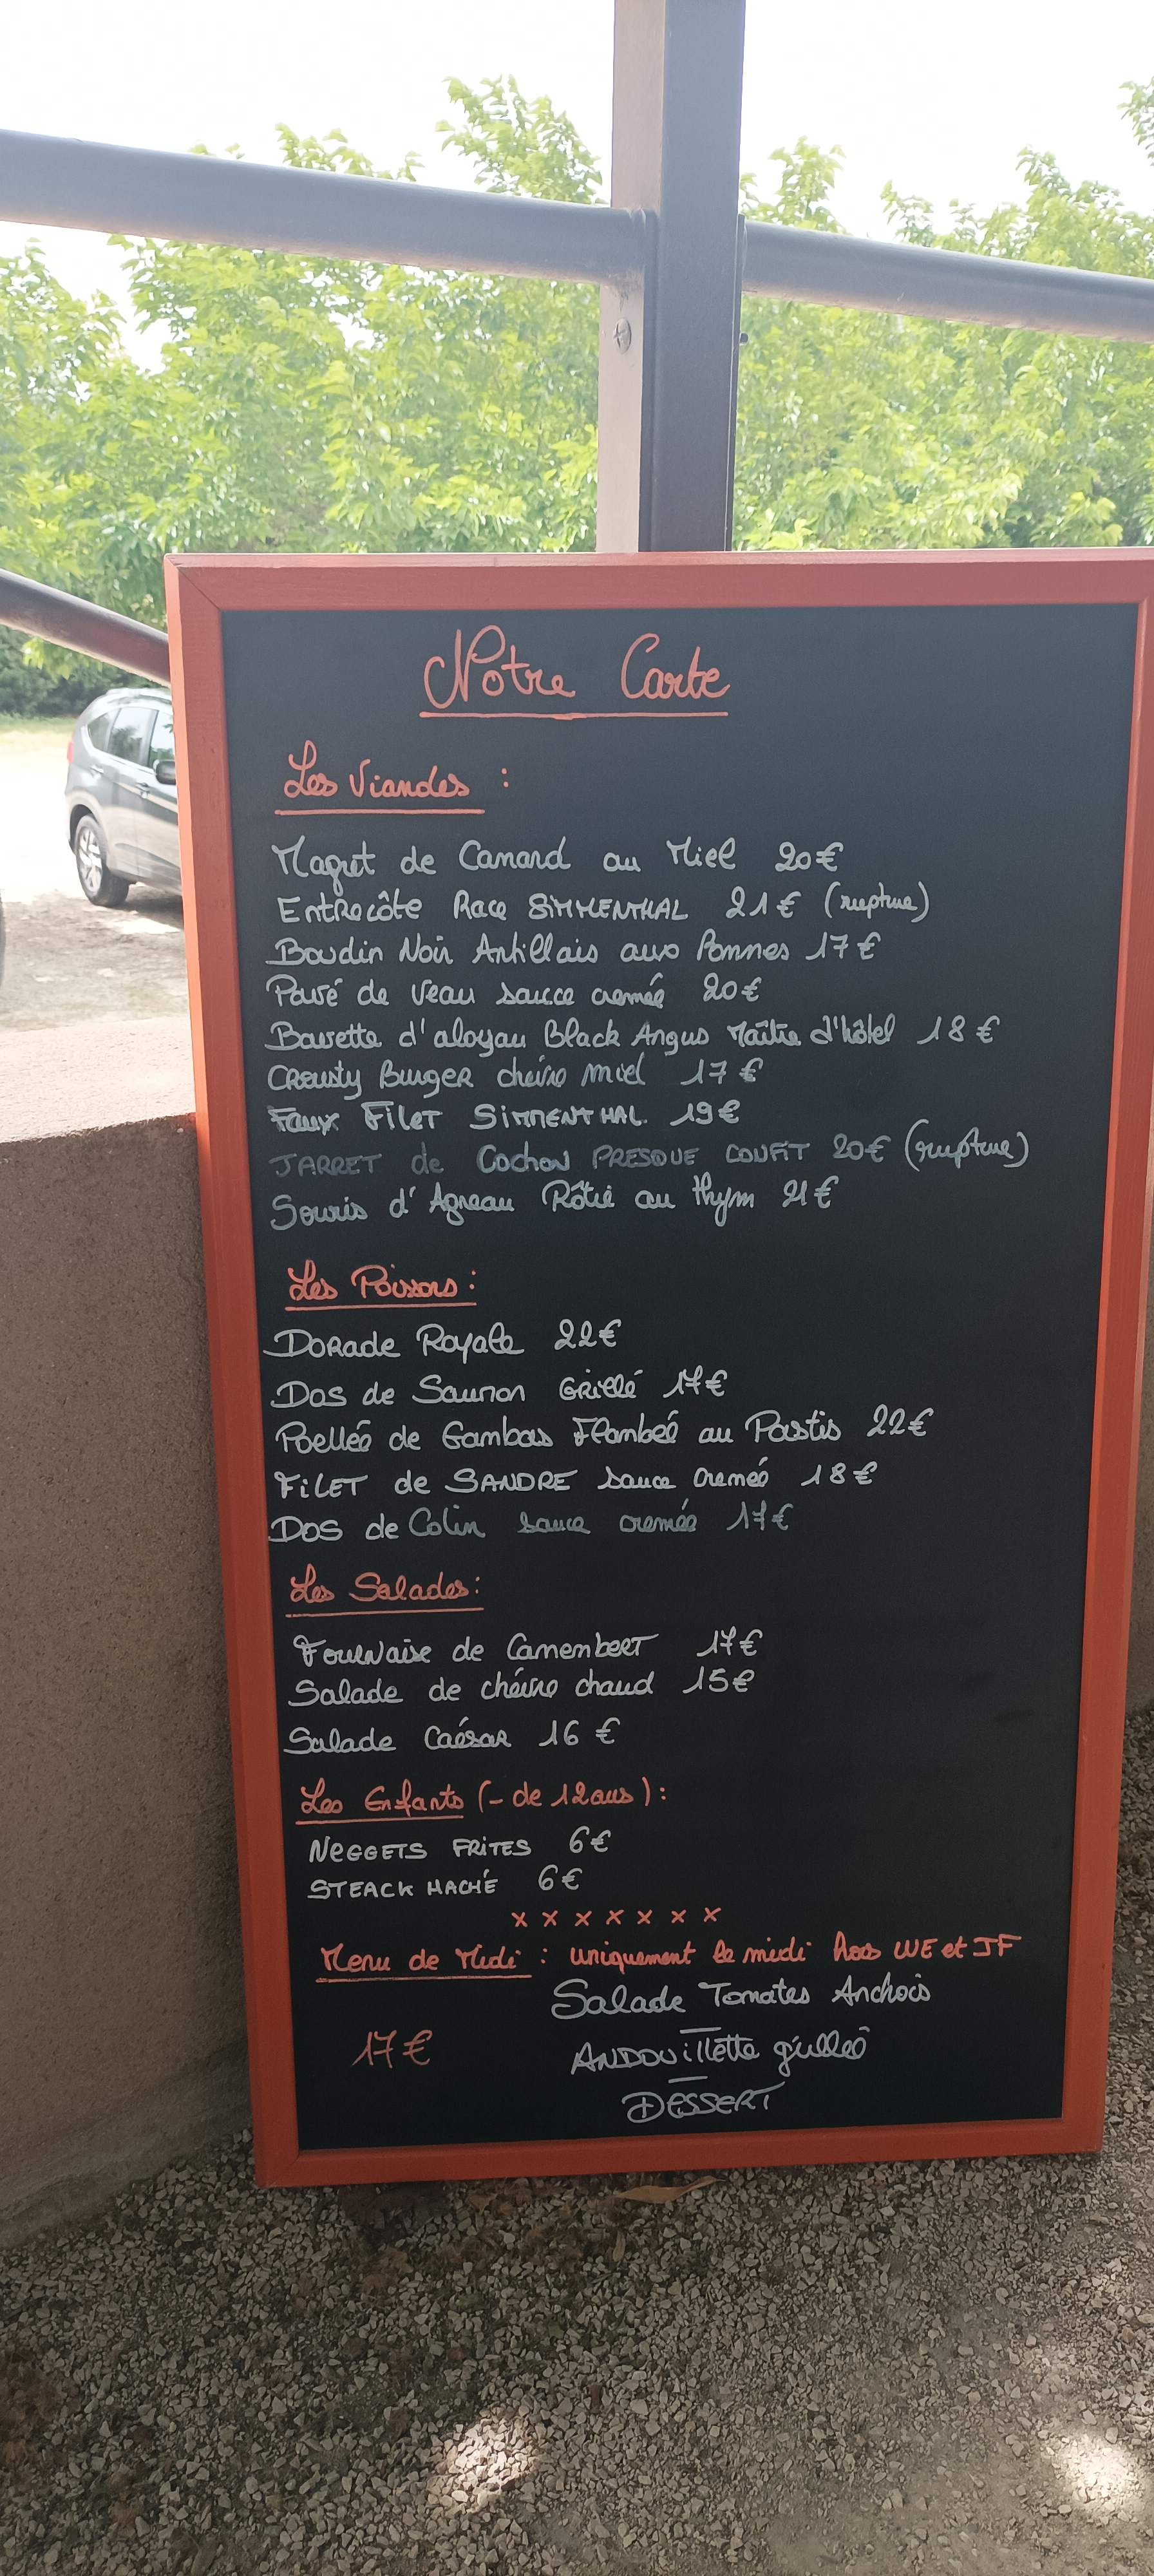 Notre Carte
Les Viandes :
Magret de Canard au Miel 20€
Entrecôte Race SIMMENTHAL 21€ (rupture)
Boudin Noir Antillais aux Pommes 17€
Pavé de Veau sauce cremée 20€
Bavette d'aloyau Black Angus Maître d'hôtel 18€
Crousty Burger chévre miel 17€
Faux Filet SIMMENTHAL. 19€
JARRET de Cochon PRESQUE CONFIT 20€ (rupture)
Souris d'Agneau Rôtie au thym 21€
Les Poissons :
Dorade Royale 22€
Dos de Saumon Grillé 17€
Poelleé de Gambas Flambeé au Pastis 22€
FILET de SANDRE sauce cremeé 18€
Dos de Colin sauce cremée 17€
Les Salades :
Fournaise de Camembert 17€
Salade de chévre chaud 15€
Salade Caésar 16€
Les Enfants (- de 12 ans) :
NEGGETS FRITES 6€
STEACK HACHÉ 6€
x x x x x x x
Menu de Midi : uniquement le midi hors WE et JF
Salade Tomates Anchois
17€ ANDOUILLETTE grilleé
DESSERT